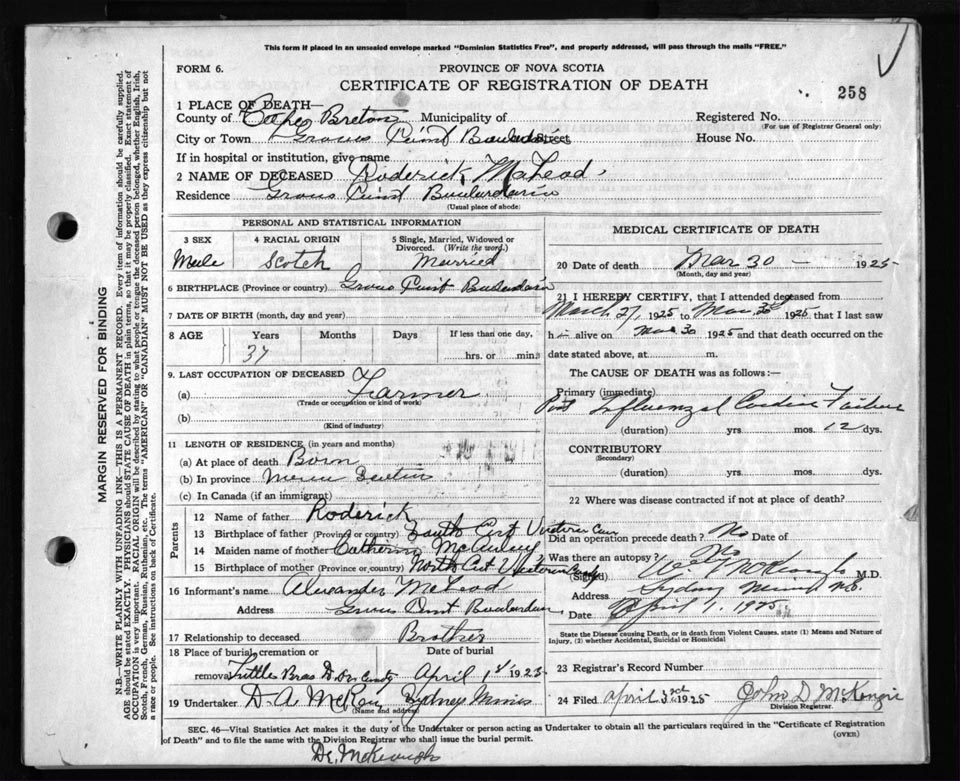 This form if placed in an unsealed envelope marked "Dominion Statistics Free", and properly addressed, will pass through the mails "FREE."
FORM 6.
PROVINCE OF NOVA SCOTIA
CERTIFICATE OF REGISTRATION OF DEATH
258
1 PLACE OF DEATH—
County of Cape Breton Municipality of Registered No.
(For use of Registrar General only)
City or Town Grous Point Street House No.
If in hospital or institution, give name
2 NAME OF DECEASED Roderick McLeod
Residence Grous Point Boulardarie
(Usual place of abode)
PERSONAL AND STATISTICAL INFORMATION
3 SEX 4 RACIAL ORIGIN 5 Single, Married, Widowed or Divorced. (Write the word.)
Male Scotch Married
6 BIRTHPLACE (Province or country) Grous Point
7 DATE OF BIRTH (month, day and year)
8 AGE Years Months Days If less than one day,
37 hrs. or min.
9. LAST OCCUPATION OF DECEASED
(a) Farmer
(Trade or occupation or kind of work)
(b)
(Kind of industry)
11 LENGTH OF RESIDENCE (in years and months)
(a) At place of death Born
(b) In province
(c) In Canada (if an immigrant)
Parents
12 Name of father Roderick
13 Birthplace of father (Province or country) South
14 Maiden name of mother Catherine McAuley
15 Birthplace of mother (Province or country) North
16 Informant's name Alexander McLeod
Address Grous Point
17 Relationship to deceased Brother
18 Place of burial, cremation or removal Date of burial
Little Bras D'Or April 1st 1925
19 Undertaker D. A. McKay Sydney Mines
(Name and address)
MEDICAL CERTIFICATE OF DEATH
20 Date of death Mar 30 — 1925
(Month, day and year)
21 I HEREBY CERTIFY, that I attended deceased from
March 27 1925 to Mar 30 1925 that I last saw
h alive on Mar 30 1925 and that death occurred on the
date stated above, at m.
The CAUSE OF DEATH was as follows:—
Primary (immediate)
Post Influenzal Cardiac Failure
(duration) yrs mos. 12 dys.
CONTRIBUTORY
(Secondary)
(duration) yrs. mos. dys.
22 Where was disease contracted if not at place of death?
Did an operation precede death? No Date of
Was there an autopsy? No
(Signed) McKeough M.D.
Address Sydney Mines N.S.
Date April 1, 1925
State the Disease causing Death, or in death from Violent Causes, state (1) Means and Nature of Injury, (2) whether Accidental, Suicidal or Homicidal
23 Registrar's Record Number
24 Filed April 3rd 1925 John D McKenzie
Division Registrar.
SEC. 46—Vital Statistics Act makes it the duty of the Undertaker or person acting as Undertaker to obtain all the particulars required in the "Certificate of Registration
of Death" and to file the same with the Division Registrar who shall issue the burial permit.
(OVER)
Dr. McKeough
MARGIN RESERVED FOR BINDING
N.B.—WRITE PLAINLY WITH UNFADING INK—THIS IS A PERMANENT RECORD. Every item of information should be carefully supplied.
AGE should be stated EXACTLY. PHYSICIANS should STATE CAUSE OF DEATH in plain terms, so that it may be properly classified. Exact statement of
OCCUPATION is very important. RACIAL ORIGIN will be described by stating to what people or tongue the deceased person belonged, whether English, Irish,
Scotch, French, German, Russian, Ruthenian, etc. The terms "AMERICAN" OR "CANADIAN" MUST NOT BE USED as they express citizenship but not
a race or people. See instructions on back of Certificate.